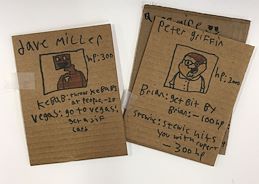 dave miller
hp:300
KEBAB: throw KEBABS
at people -20
vegas: go to vegas!
get a
peter griffin
hp:300
Brian: get Bit BY
Brian: -100hp
stewie: stewie hits
you with
-300hp